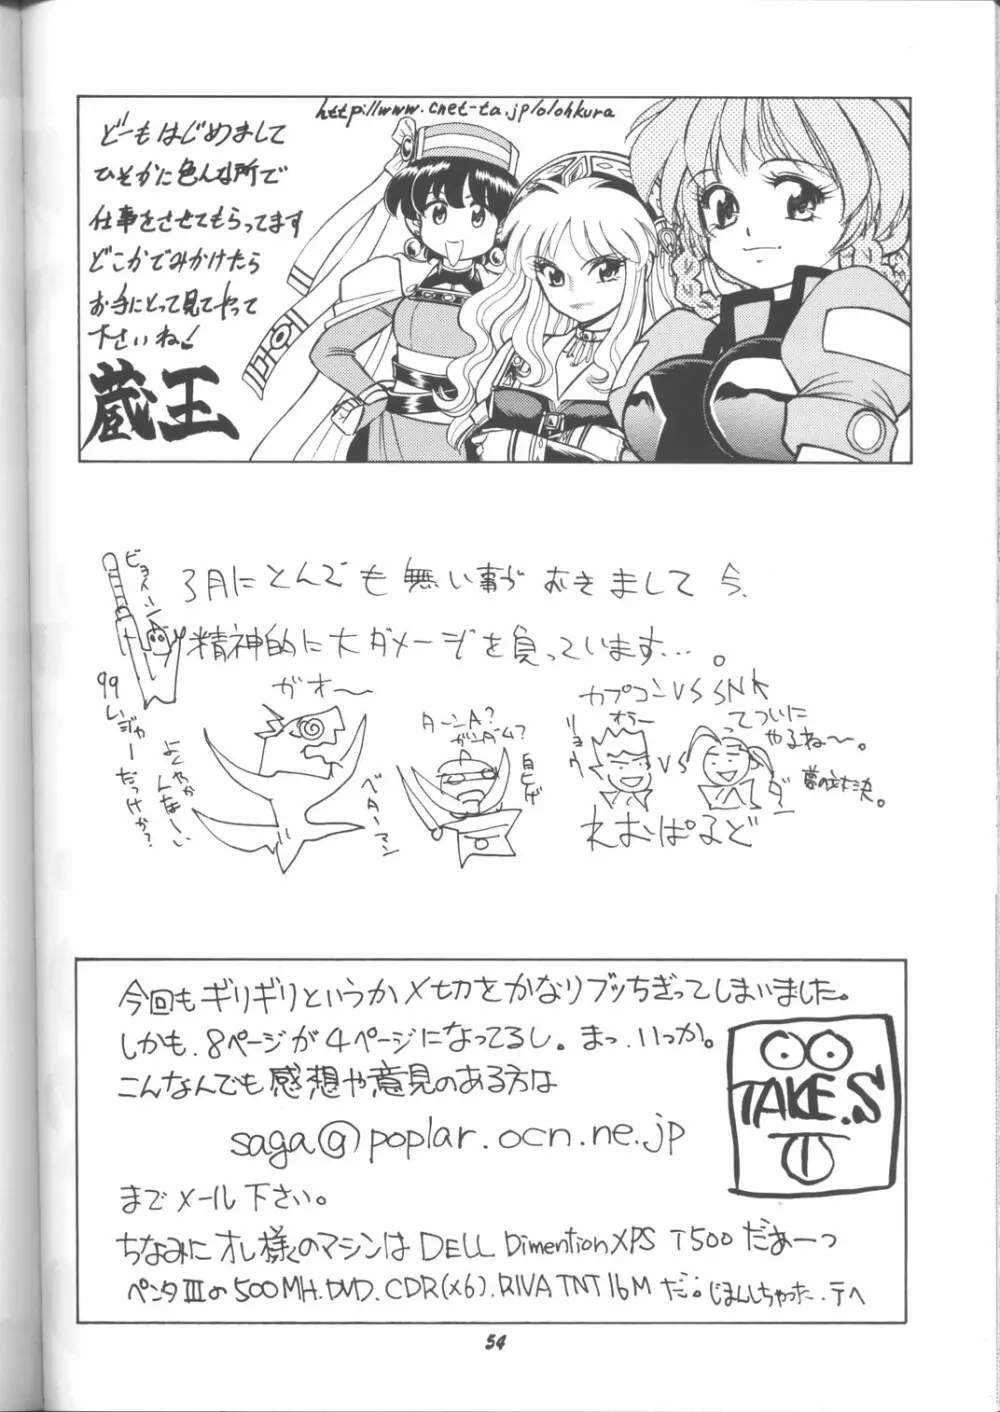 http://www.cnet-ta.jp/o/ohkura
どーもはじめまして
ひそかに色んな所で
仕事をさせてもらってます
どこかでみかけたら
お手にとって見てやって
下さいね!
蔵王
3月にとんでも無い事がおきまして今、
精神的に大ダメージを負っています…。
ビヨィーン
99レジャーだっけか?
ガオ〜
よくやかんなーい
ベターマン
ターンA?
ガンダム?
白ヒゲ
カプコンVS SNK
ってついに
やるね〜。
夢の対決。
リョウ
オラー
VS
ダン
れおぱるど
今回もギリギリというか〆切をかなりブッちぎってしまいました。
しかも、8ページが4ページになってるし。まっ、いっか。
こんなんでも感想や意見のある方は
saga@poplar.ocn.ne.jp
までメール下さい。
TAKE.S
ちなみにオレ様くのマシンはDELL Dimention XPS T500だあーっ
ペンタIIIの500MH.DVD.CDR(x6).RIVA TNT 16Mだ。じまんしちゃった.テヘ
54